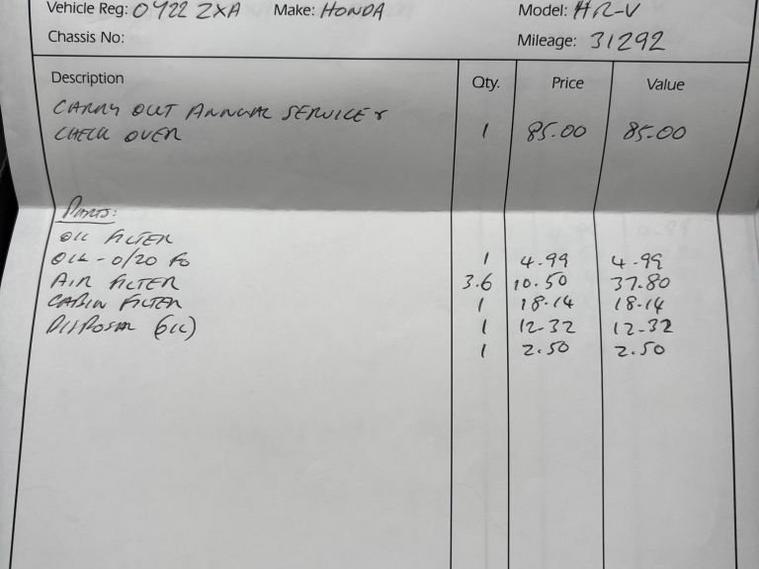 Vehicle Reg: OY22 ZXA Make: HONDA Model: HR-V
Chassis No: Mileage: 31292
Description Qty. Price Value
CARRY OUT ANNUAL SERVICE &
CHECK OVER 1 85.00 85.00
PARTS:
OIL FILTER
OIL - 0/20 1 4.99 4.99
AIR FILTER 3.6 10.50 37.80
CABIN FILTER 1 18.14 18.14
DISPOSAL (OIL) 1 12-32 12-32
1 2.50 2.50